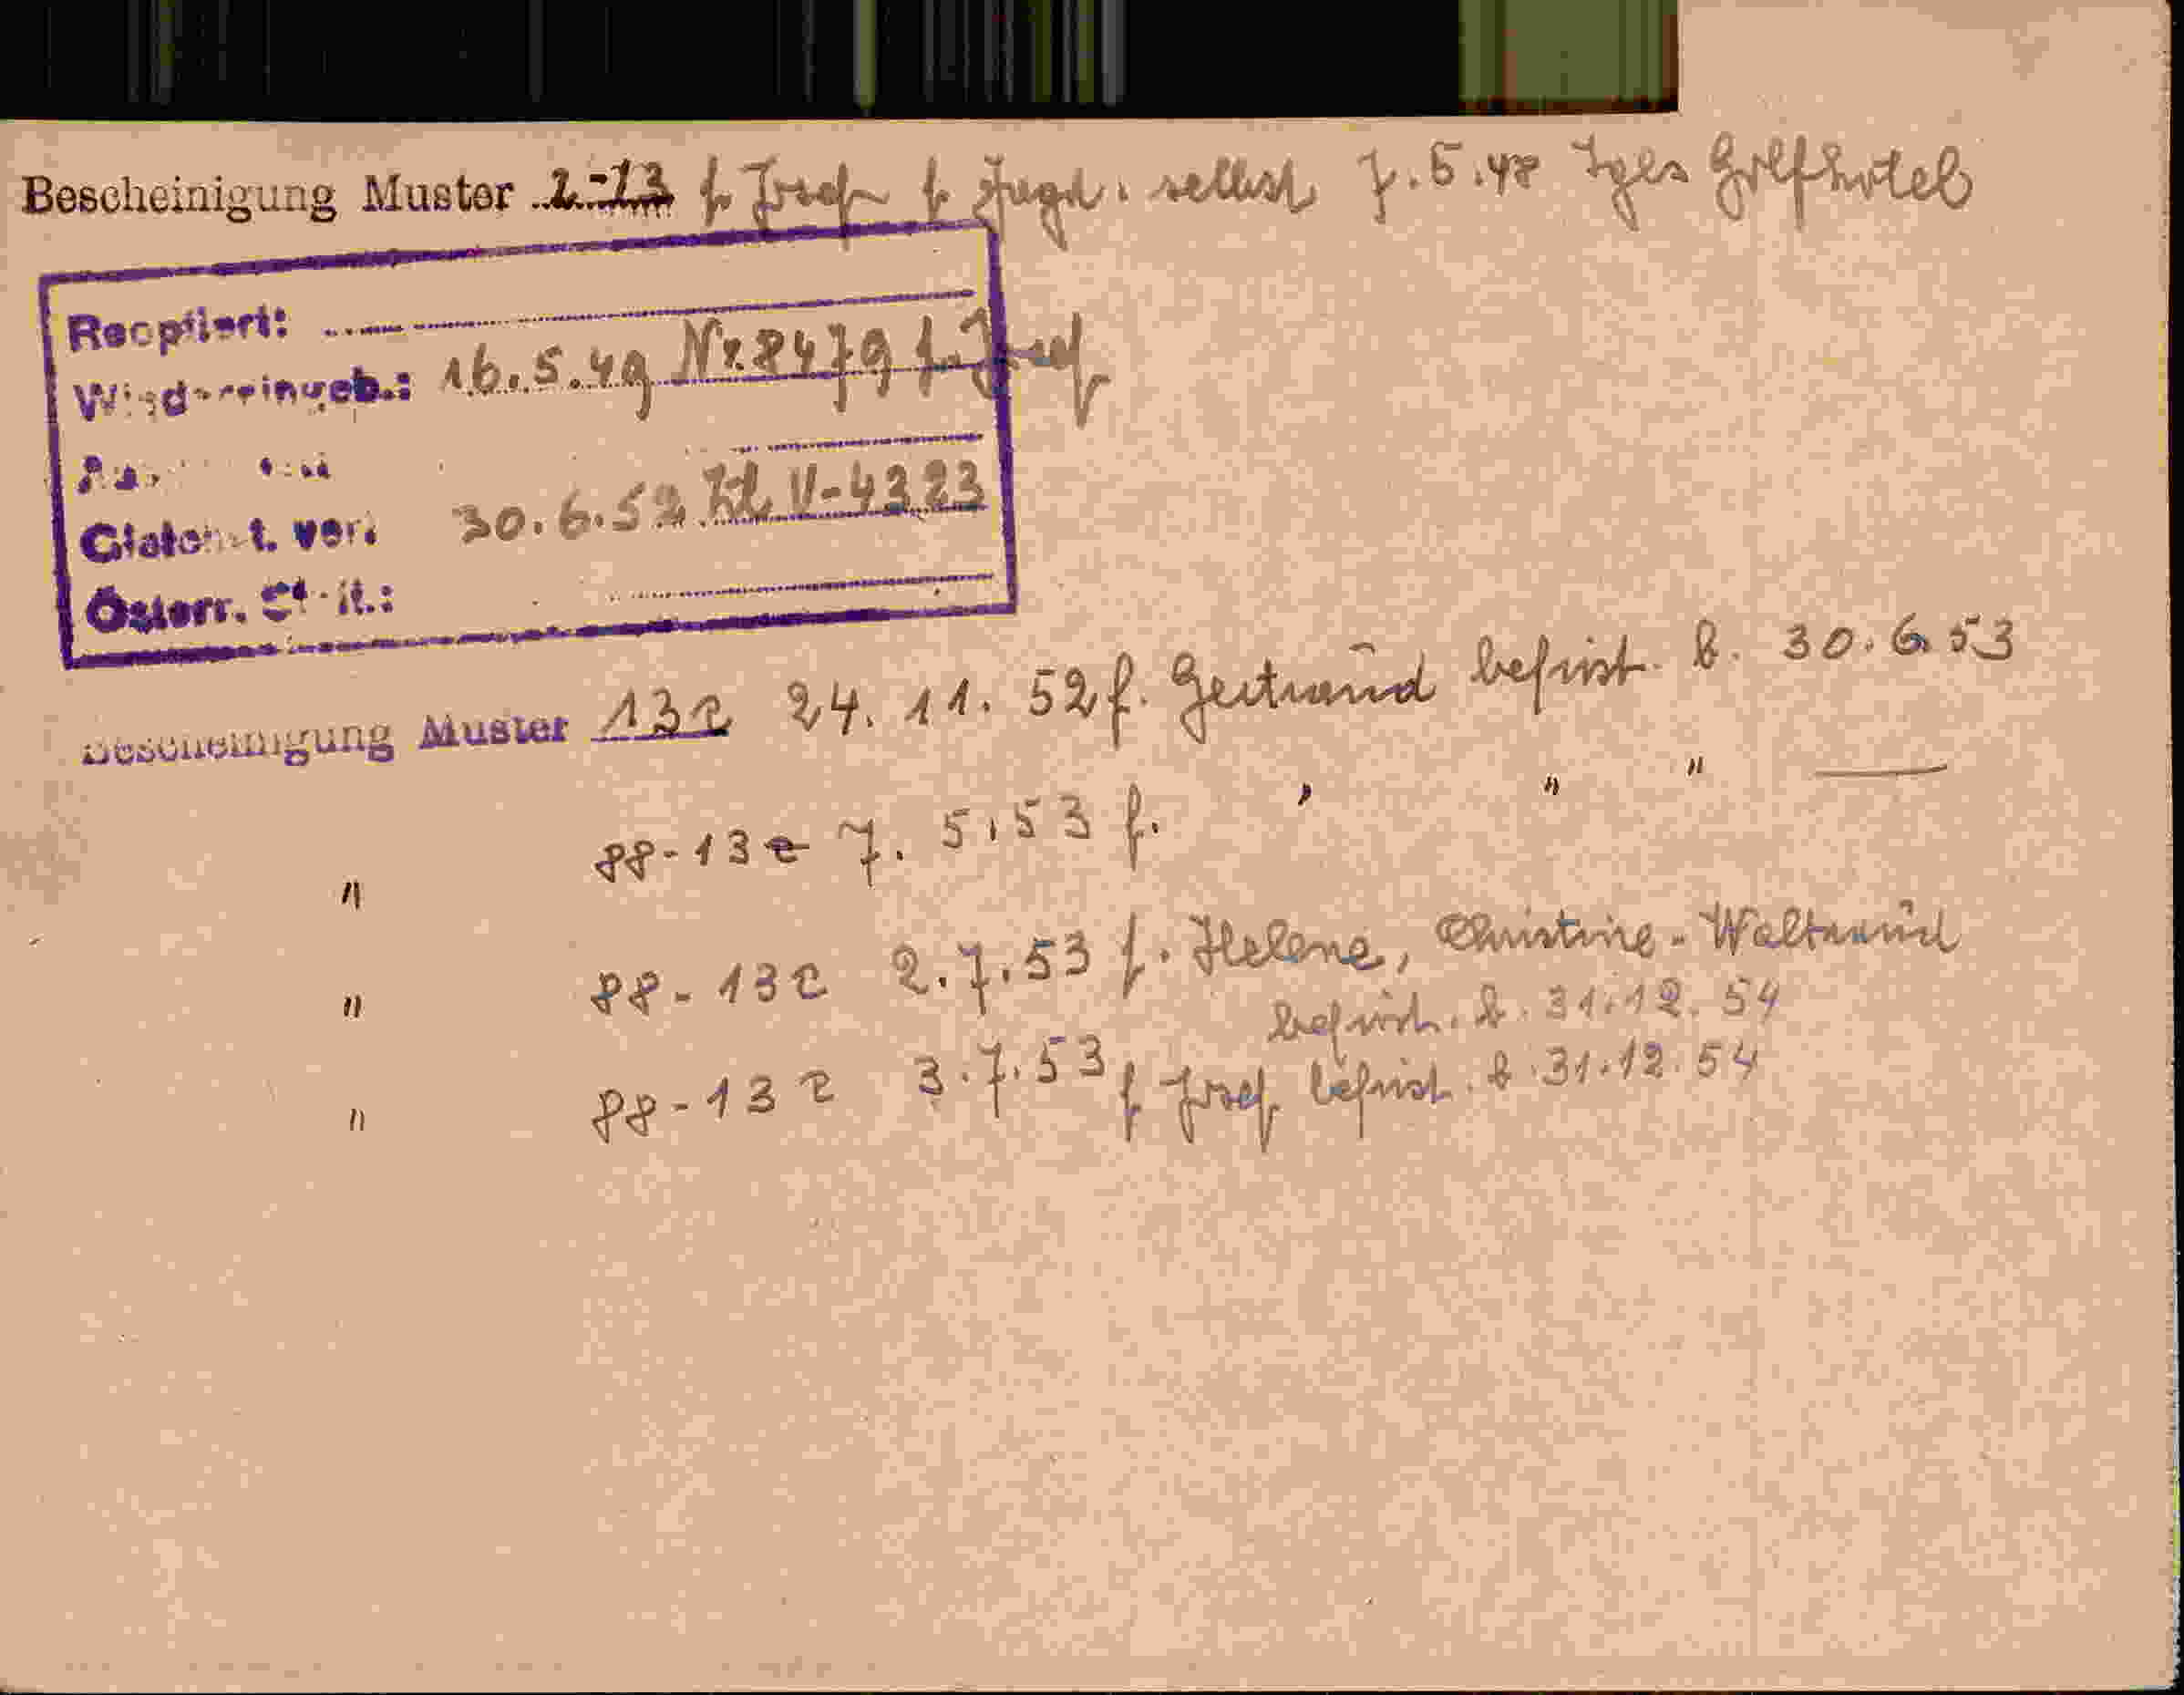 Bescheinigung Muster 2-13 f. Josef f. Jugd. selbst 7.5.48 Igls Golfhotel
Reopfiert:
Wiedereingeb.: 16.5.49 Nr. 8479 f. Josef
Gleichst. ver. 30.6.52 Zl V-4323
Österr. St
Bescheinigung Muster 13c 24.11.52 f. Gertraud befrist. b. 30.6.53
" 88-13c 7.5.53 f. " " " —
" 88-13c 2.7.53 f. Helene, Christine-Waltraud
befrist. b. 31.12.54
" 88-13c 3.7.53 f. Josef befrist. b. 31.12.54